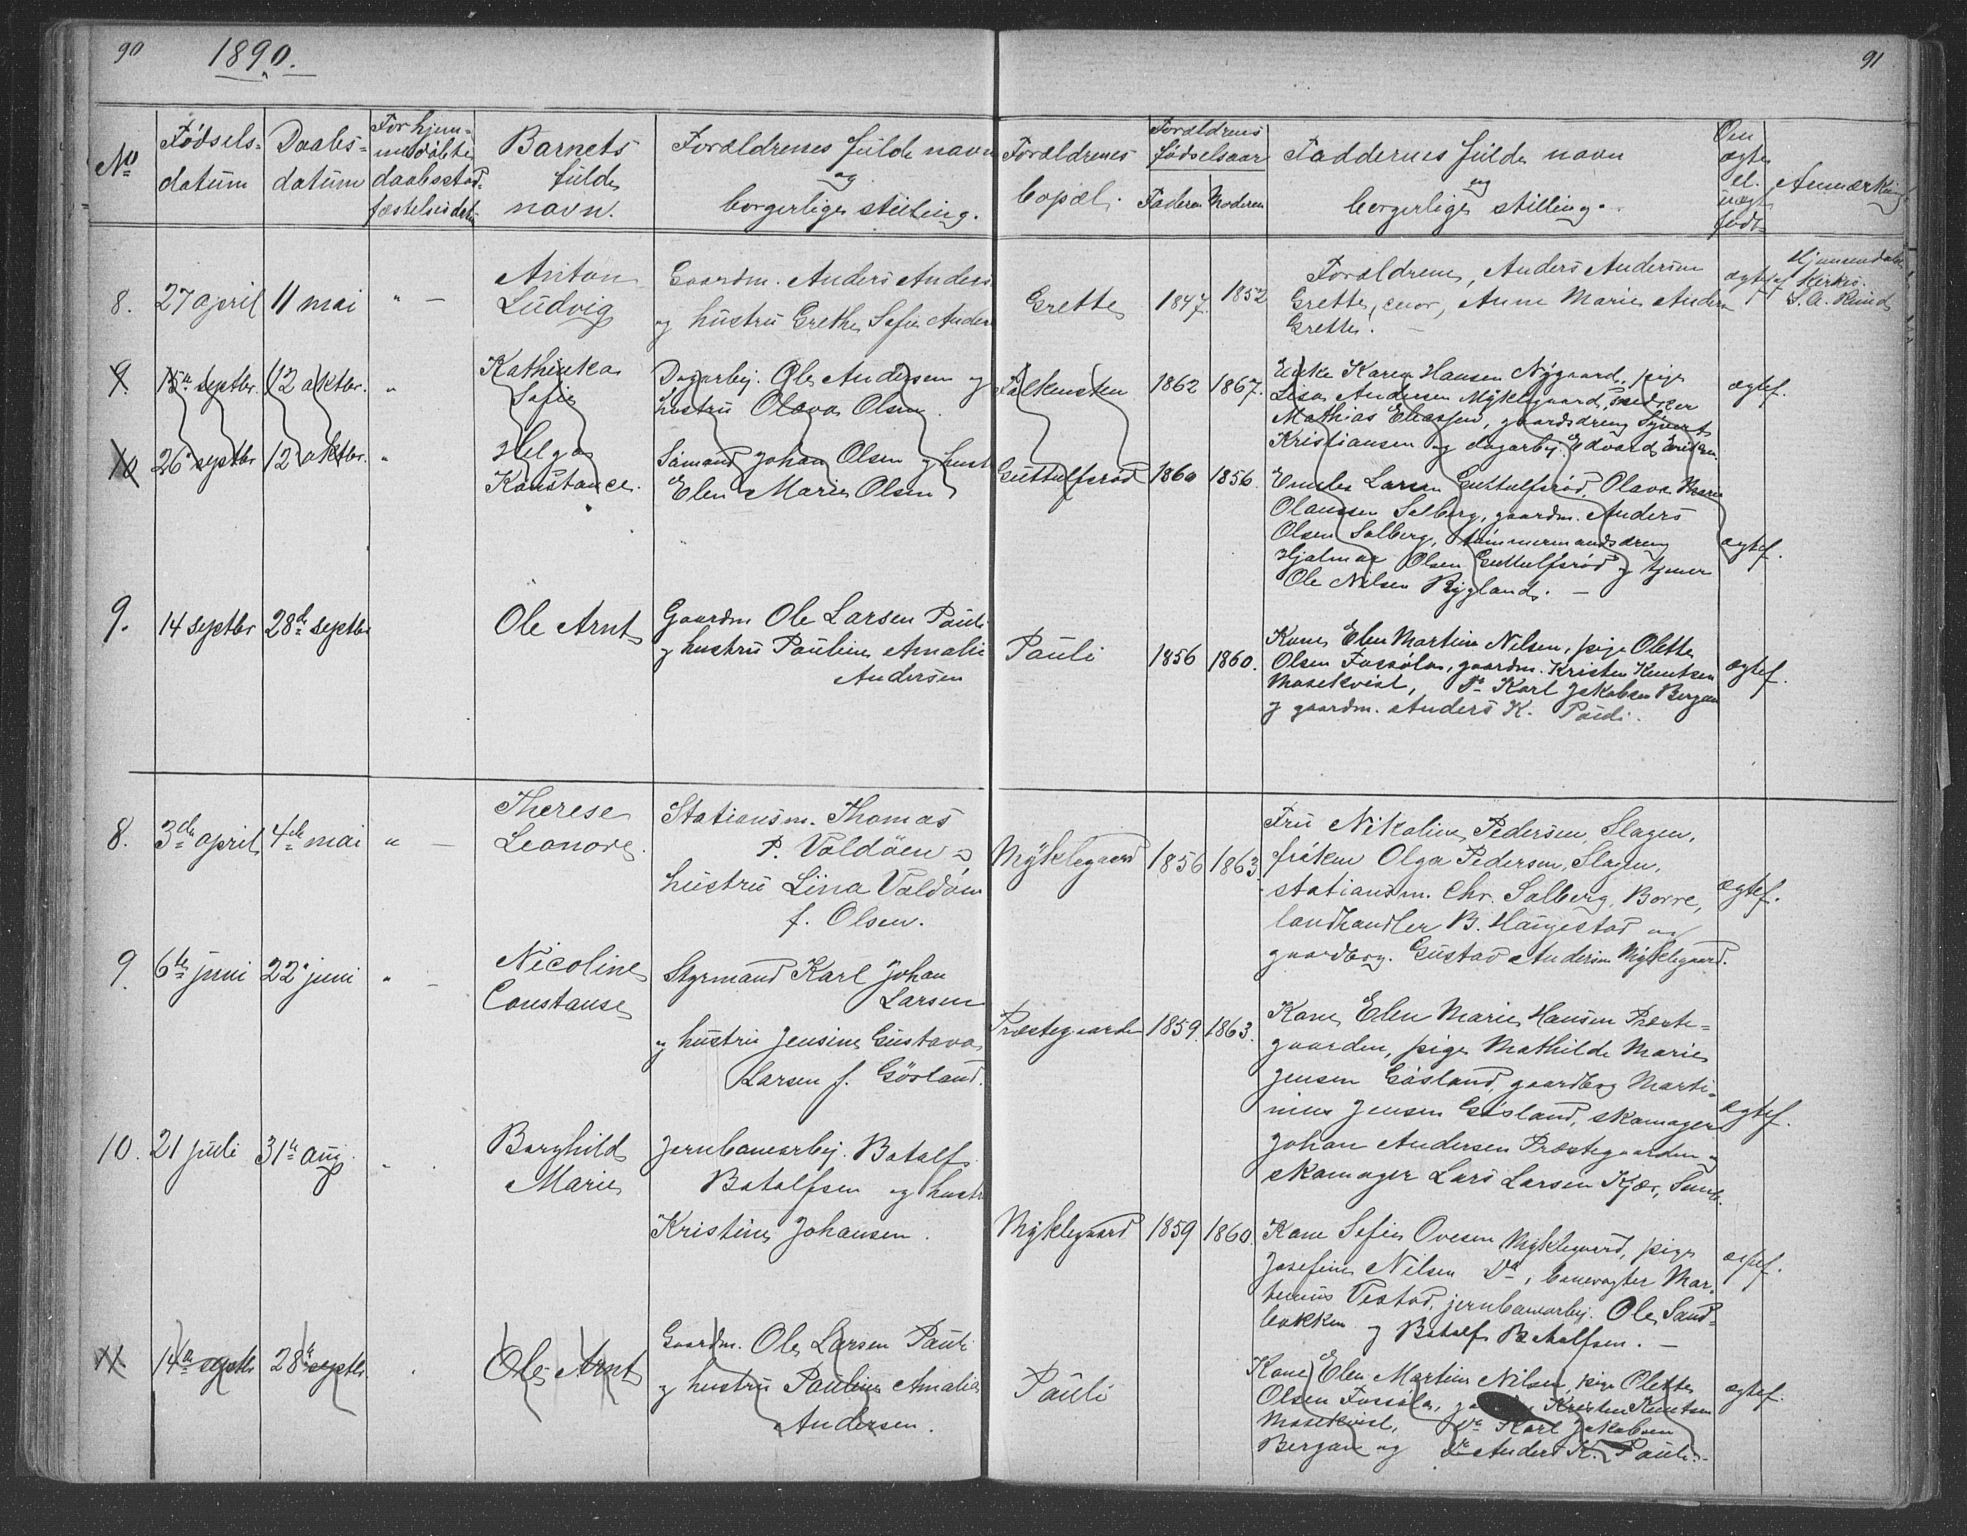 90
1890.
91
No
Fødsels-
datum
Daabs-
datum
For hjem-
medøbte
daabsstad-
fæstelsesdat.
Barnets
fulde
navn.
Forældrenes fulde navn
og
borgerlige stilling.
Forældrenes
bopæl.
Forældrenes
fødselsaar
Faderen
Moderen
Faddernes fulde navn
og
borgerlige stilling.
Om
ægte
el.
uægte
født
Anmærkning
8.
27 april
11 mai
" —
Anton
Ludvig
Gaardm. Anders Anders
og hustru Grethe Sofie Anders
Grette
1847.
1852
Forældrene, Anders Andersen
Grette, Anne Marie Anders
Grette. —
ægtef.
Kirke.
9.
15de septbr.
12 oktbr.
"
Kathinka
Sofie
Dagarbej. Ole Andersen og
hustru Olava Olsen.
Falkensten
1862
1867.
Enke Karen Hansen Nygaard, pige
Lisa Andersen Myklegaard, snedker
Mathias Eliassen, gaardsdreng Syvert
Kristiansen og dagarbej. Edvard
ægtef.
10
26 septbr
12 oktbr.
"
Helga
Konstance.
Sømand Johan Olsen og hust
Elen Marie Olsen
Guttulfsrød
1860
1856.
Larsen Guttulfsrød, Olava Marie
Olaussen Solberg, gaardm. Anders
Olsen Solberg, tømmermandsdreng
Hjalmar Olsen Guttulfsrød og tjener
Ole Nilsen Rygland. —
ægtef.
9.
14 septbr
28de septbr
Ole Arnt
Gaardm Ole Larsen Pauli
og hustru Pauline Amalie
Andersen
Pauli
1856
1860.
Kone Elen Martine Nilsen, pige Olette
Olsen Fossøla, gaardm. Kristen Knutsen
Mosekvist, Do Karl Jakobsen Bergan
og gaardm. Anders K. Pauli.
ægtef.
8.
3de april
4de mai
" —
Therese
Leonore.
Stationsm. Thomas
P. Valdöen og
hustru Lina Valdöen
f. Olsen.
Myklegaard
1856
1863.
Fru Nikoline Pedersen, Slagen,
frøken Olga Pedersen, Slagen,
stationsm. Chr. Solberg, Borre,
landhandler B. Haugestad og
gaardbrg. Gustav Andersen Myklegaard.
ægtef.
9.
6te juni
22 juni
" —
Nicoline
Constanse
Styrmand Karl Johan
Larsen
og hustru Jensine Gustava
Larsen f. Gøsland.
Præstegaarden
1859.
1863.
Kone Elen Marie Hansen Præste-
gaarden, pige Mathilde Marie
Jensen Gøsland, gaardbrg Marti-
nius Jensen Gøsland, skomager
Johan Andersen Præstegaarden og
skomager Lars Larsen Kjær, Sem.
ægtef.
10.
21 juli
31te aug.
" .
Borghild
Marie
Jernbanearbej. Botolf
Botolfsen og hustr
Kristine Johansen.
Myklegaard
1859
1860.
Kone Sofie Ovesen Myklegaard, pige
Josefine Nilsen Do, banevogter Mar-
tinius Vestad, jernbanearbej. Ole Sand-
bakken og Botolf Botolfsen. —
ægtef.
11.
14de septbr
28de septbr.
Ole Arnt
Gaardm. Ole Larsen Pauli
og hustru Pauline Amalie
Andersen.
Pauli
Kone Elen Martine Nilsen, pige Olette
Olsen Fossøla, Kristen Knutsen
Mosekvist, Do Karl Jakobsen
Bergan og Do Anders K. Pauli.
ægtef.